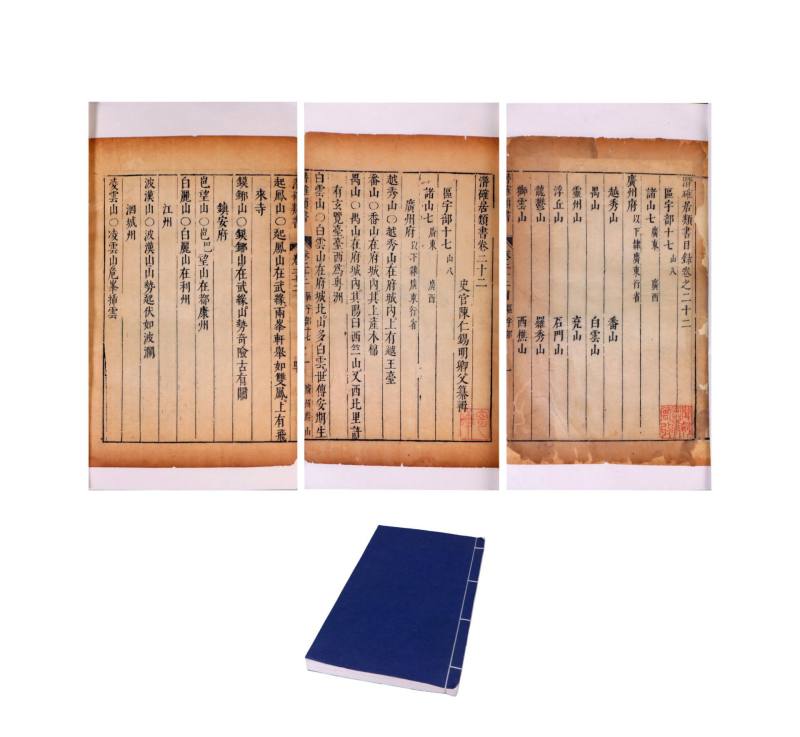 潛確居類書目錄卷之二十二
區宇部十七 山八
諸山七 廣東 廣西
廣州府 以下隸廣東行省
越秀山 番山
禺山 白雲山
靈州山 堯山
浮丘山 石門山
龍鬱山 羅秀山
御雲山 西樵山
潛確居類書卷二十二
史官陳仁錫明卿父纂輯
區宇部十七 山八
諸山七 廣東 廣西
廣州府 以下隸廣東行省
越秀山○越秀山在府城內上有越王臺
番山○番山在府城內其上產木棉
禺山○禺山在府城內其陽曰西竺山又西北里許
有玄覽臺臺西爲粤洲
白雲山○白雲山在府城北山多白雲世傳安期生
起鳳山○起鳳山在武緣兩峯軒舉如雙鳳上有飛
來寺
鏌鎁山○鏌鎁山在武緣山勢奇險古有關
鎮安府
岜望山○岜望山在都康州
白麗山○白麗山在利州
江州
波漢山○波漢山山勢起伏如波瀾
泗城州
凌雲山○凌雲山危峯揷雲